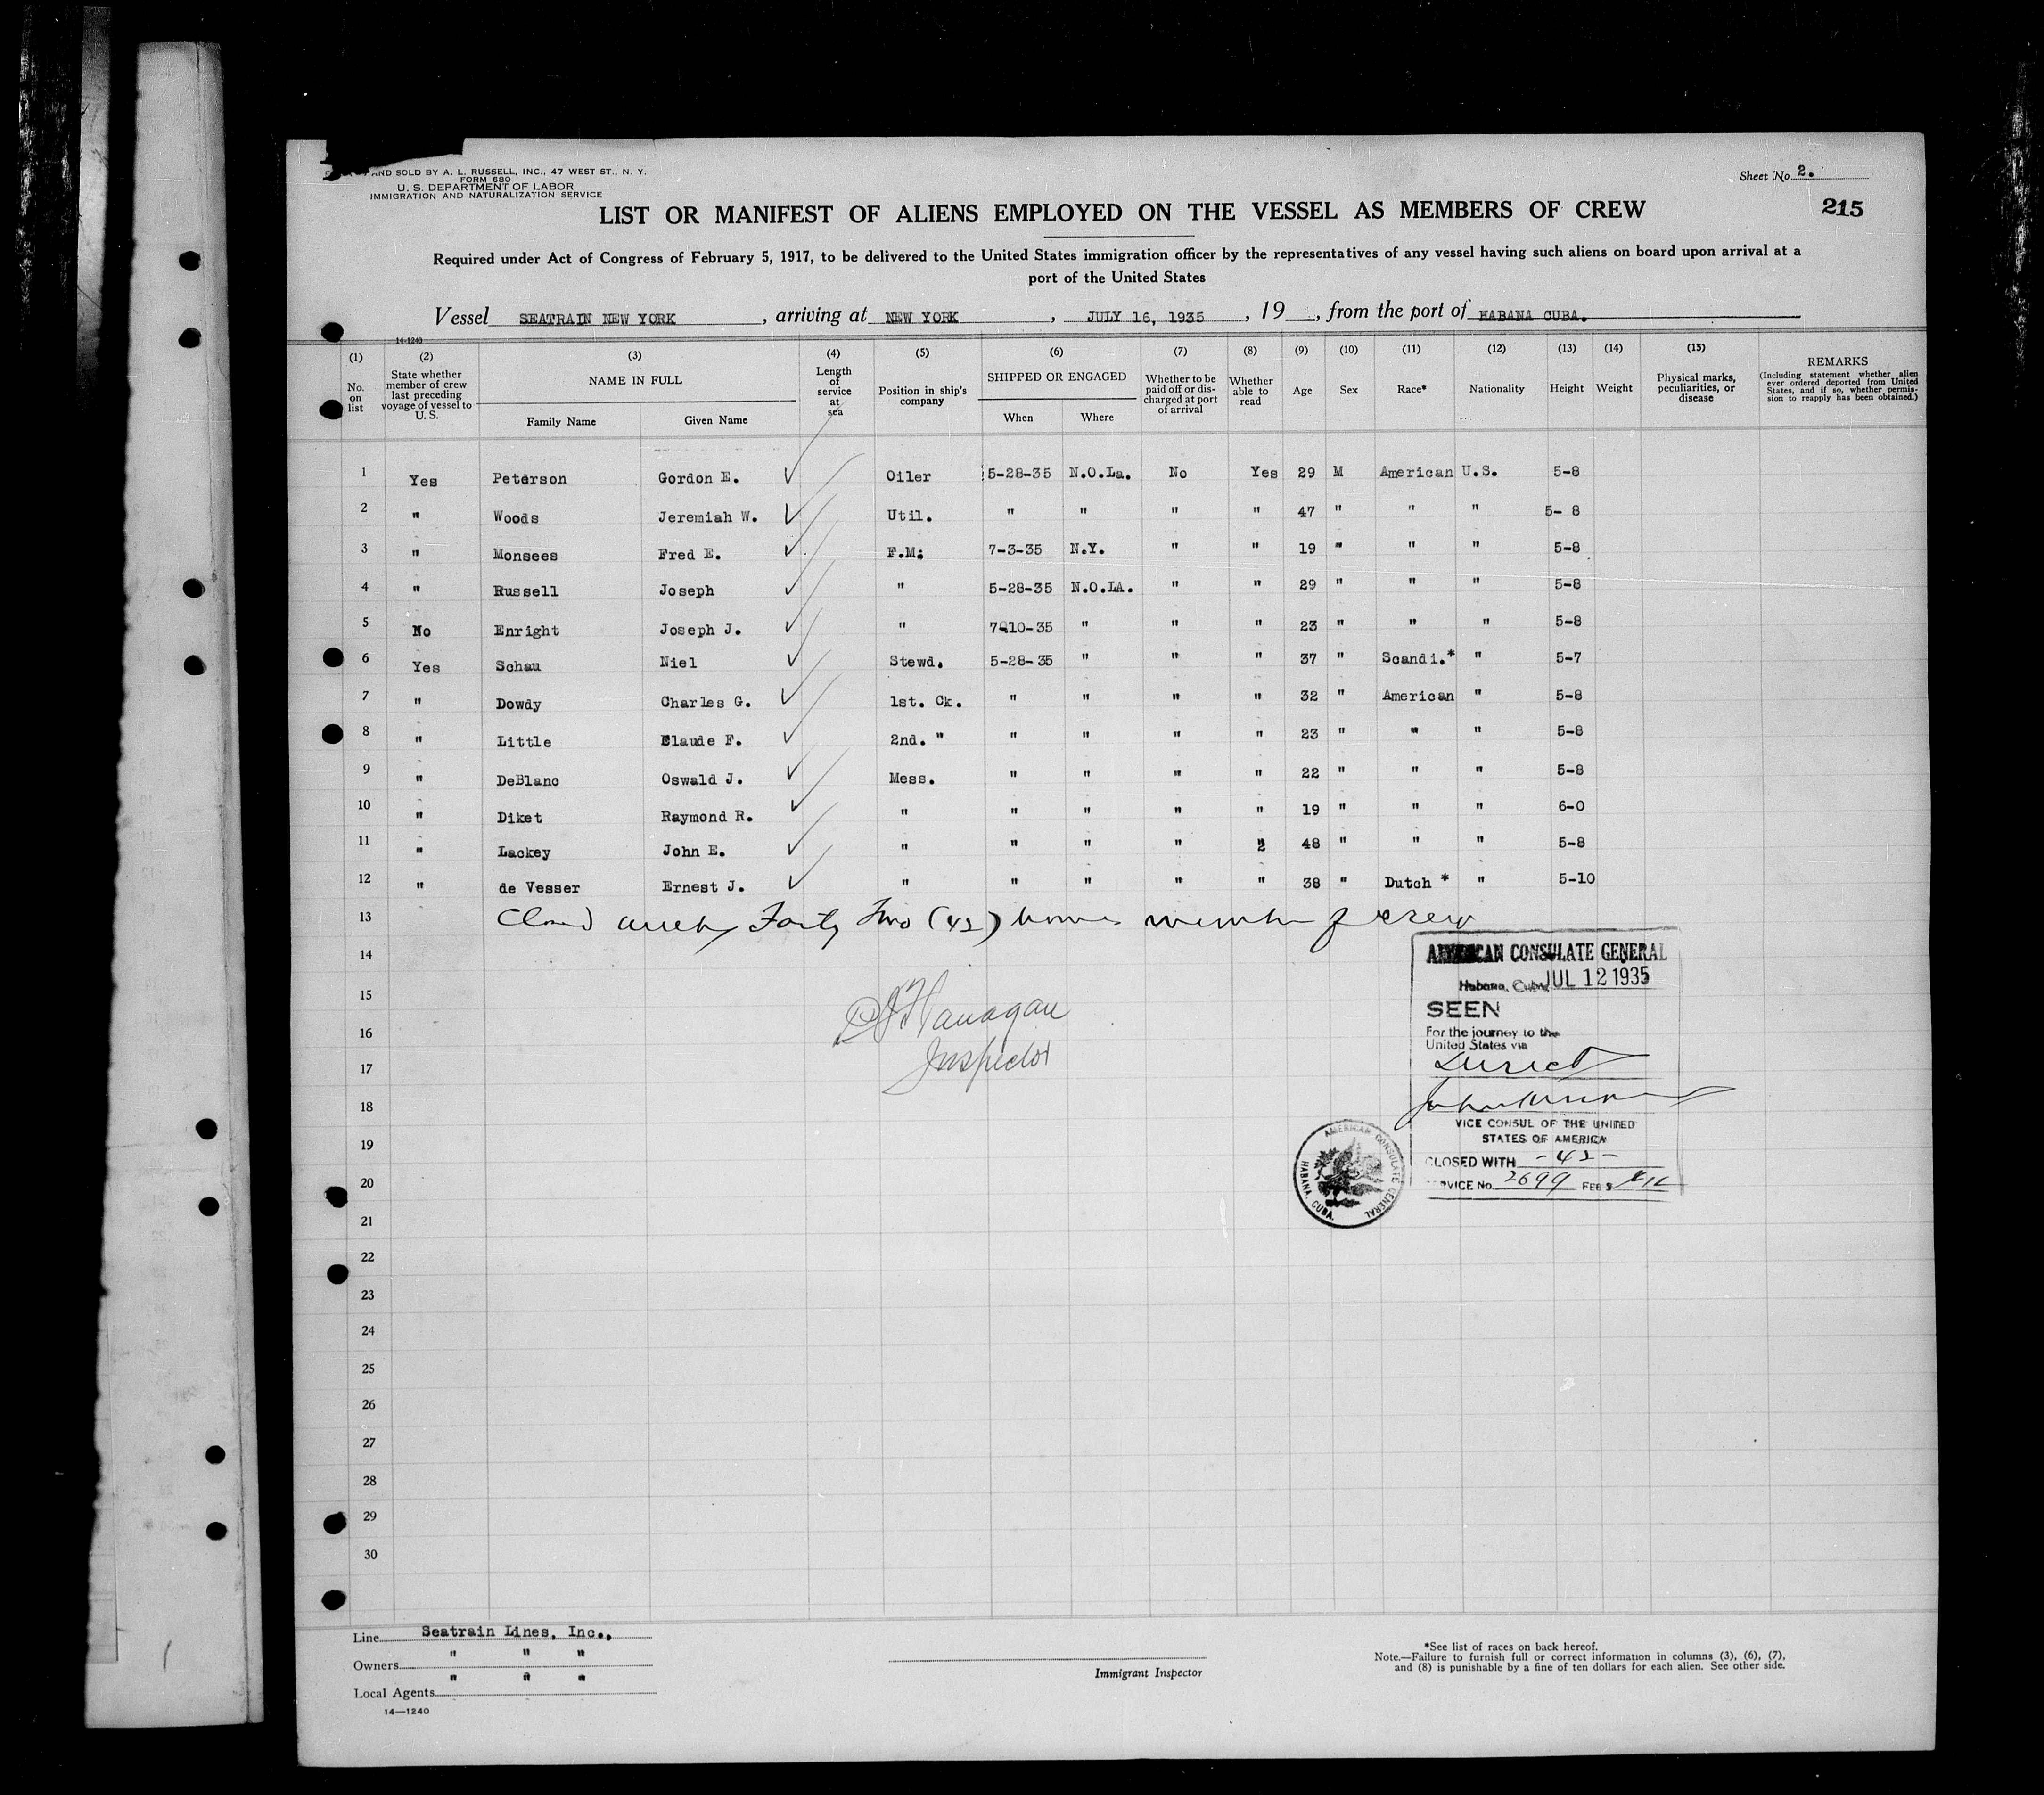 AND SOLD BY A. L. RUSSELL, INC., 47 WEST ST., N. Y.
FORM 680
U. S. DEPARTMENT OF LABOR
IMMIGRATION AND NATURALIZATION SERVICE
Sheet No. 2.
LIST OR MANIFEST OF ALIENS EMPLOYED ON THE VESSEL AS MEMBERS OF CREW
215
Required under Act of Congress of February 5, 1917, to be delivered to the United States immigration officer by the representatives of any vessel having such aliens on board upon arrival at a
port of the United States
Vessel SEATRAIN NEW YORK, arriving at NEW YORK, JULY 16, 1935, 19 , from the port of HABANA CUBA.
14-1240
(1) (2) (3) (4) (5) (6) (7) (8) (9) (10) (11) (12) (13) (14) (15)
No. on list
State whether member of crew last preceding voyage of vessel to U. S.
NAME IN FULL
Family Name Given Name
Length of service at sea
Position in ship's company
SHIPPED OR ENGAGED
When Where
Whether to be paid off or discharged at port of arrival
Whether able to read
Age Sex Race* Nationality Height Weight
Physical marks, peculiarities, or disease
REMARKS
(Including statement whether alien ever ordered deported from United States, and if so, whether permission to reapply has been obtained.)
1 Yes Peterson Gordon E. ✓ Oiler 5-28-35 N.O.La. No Yes 29 M American U.S. 5-8
2 " Woods Jeremiah W. ✓ Util. " " " " 47 " " " 5- 8
3 " Monsees Fred E. ✓ F.M. 7-3-35 N.Y. " " 19 " " " 5-8
4 " Russell Joseph ✓ " 5-28-35 N.O.LA. " " 29 " " " 5-8
5 No Enright Joseph J. ✓ " 7-10-35 " " " 23 " " " 5-8
6 Yes Schau Niel ✓ Stewd. 5-28-35 " " " 37 " Scandi.* " 5-7
7 " Dowdy Charles G. ✓ 1st. Ck. " " " " 32 " American " 5-8
8 " Little Claude F. ✓ 2nd. " " " " " 23 " " " 5-8
9 " DeBlanc Oswald J. ✓ Mess. " " " " 22 " " " 5-8
10 " Diket Raymond R. ✓ " " " " " 19 " " " 6-0
11 " Lackey John E. ✓ " " " " " 48 " " " 5-8
12 " de Vesser Ernest J. ✓ " " " " " 38 " Dutch * " 5-10
13 Closed with Forty Two (42) members of crew
14
AMERICAN CONSULATE GENERAL
Habana, Cuba JUL 12 1935
15
SEEN
Flanagan
16
For the journey to the
United States via
Inspector
17
Direct
18
VICE CONSUL OF THE UNITED
STATES OF AMERICA
19
CLOSED WITH -42-
20
SERVICE No. 2699 FEE $
AMERICAN CONSULATE GENERAL HABANA, CUBA.
21
22
23
24
25
26
27
28
29
30
Line Seatrain Lines, Inc.,
Owners " " "
Local Agents " " "
14—1240
Immigrant Inspector
*See list of races on back hereof.
Note.—Failure to furnish full or correct information in columns (3), (6), (7),
and (8) is punishable by a fine of ten dollars for each alien. See other side.